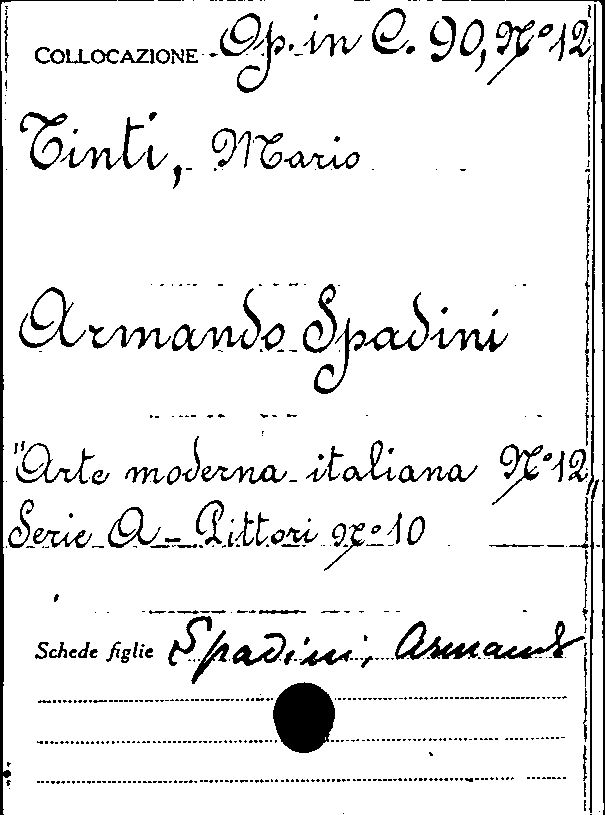 COLLOCAZIONE Op. in C. 90, N° 12
Tinti, Mario
Armando Spadini
"Arte moderna italiana N° 12"
Serie A - Pittori N° 10
Schede figlie Spadini, Armando